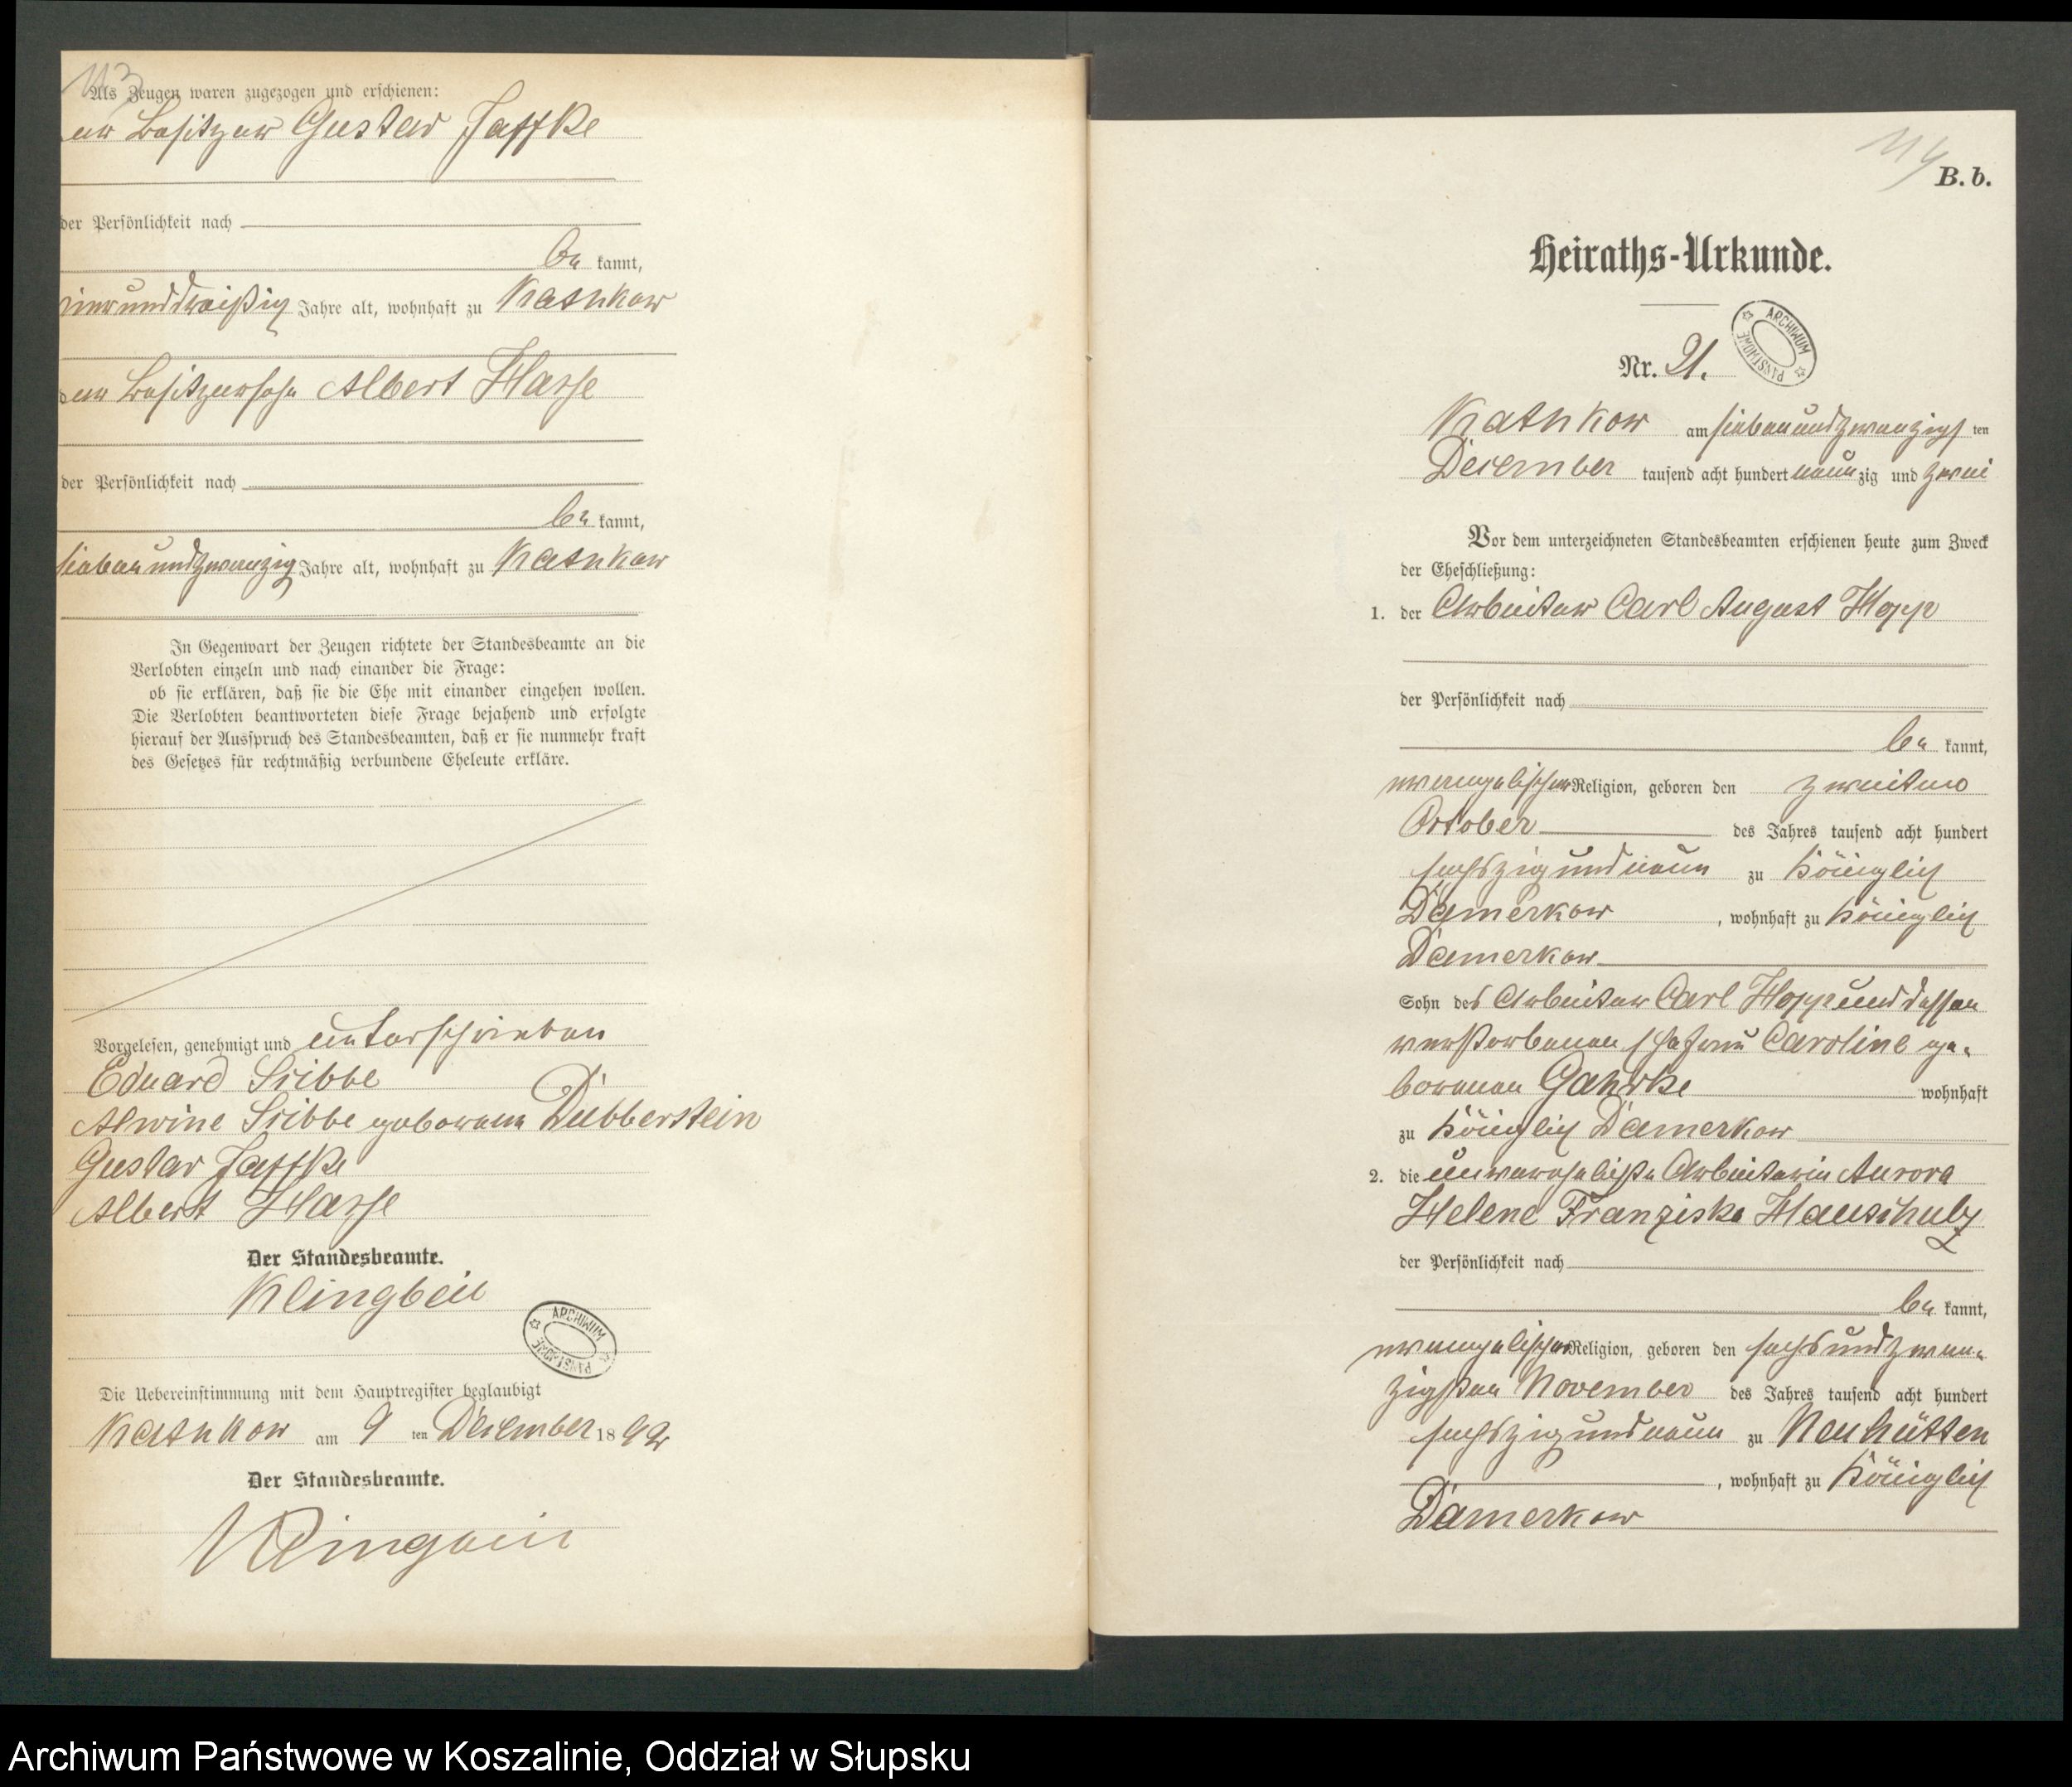 113
Als Zeugen waren zugezogen und erschienen:
der Besitzer Gustav Jaffke
der Persönlichkeit nach
be kannt,
unddreißig Jahre alt, wohnhaft zu Kathkow
der Besitzersohn Albert Hasse
der Persönlichkeit nach
be kannt,
siebenundzwanzig Jahre alt, wohnhaft zu Kathkow
In Gegenwart der Zeugen richtete der Standesbeamte an die
Verlobten einzeln und nach einander die Frage:
ob sie erklären, daß sie die Ehe mit einander eingehen wollen.
Die Verlobten beantworteten diese Frage bejahend und erfolgte
hierauf der Ausspruch des Standesbeamten, daß er sie nunmehr kraft
des Gesetzes für rechtmäßig verbundene Eheleute erkläre.
Vorgelesen, genehmigt und unterschrieben
Eduard Sribbe
Alwine Sribbe geborene Dubberstein
Gustav Jaffke
Albert Hasse
Der Standesbeamte.
Klingbeil
ARCHIWUM PAŃSTWOWE
Die Uebereinstimmung mit dem Hauptregister beglaubigt
Kathkow am 9 ten December 18 92
Der Standesbeamte.
Klingbeil
114
B. b.
Heiraths-Urkunde.
Nr. 21.
ARCHIWUM PAŃSTWOWE
Kathkow am siebenundzwanzigs ten
December tausend acht hundert neun zig und zwei
Vor dem unterzeichneten Standesbeamten erschienen heute zum Zweck
der Eheschließung:
1. der Arbeiter Carl August Hopp
der Persönlichkeit nach
be kannt,
evangelischer Religion, geboren den zweiten
October des Jahres tausend acht hundert
sechszig und neun zu Königlich
Damerkow, wohnhaft zu Königlich
Damerkow
Sohn des Arbeiter Carl Hopp und dessen
verstorbenen Ehefrau Caroline ge-
borenen Gahrke wohnhaft
zu Königlich Damerkow
2. die unverehelichte Arbeiterin Aurora
Helene Franziska Hauschulz
der Persönlichkeit nach
be kannt,
evangelischer Religion, geboren den sechsundzwan-
zigsten November des Jahres tausend acht hundert
sechszig und neun zu Neuhütten
, wohnhaft zu Königlich
Damerkow
Archiwum Państwowe w Koszalinie, Oddział w Słupsku